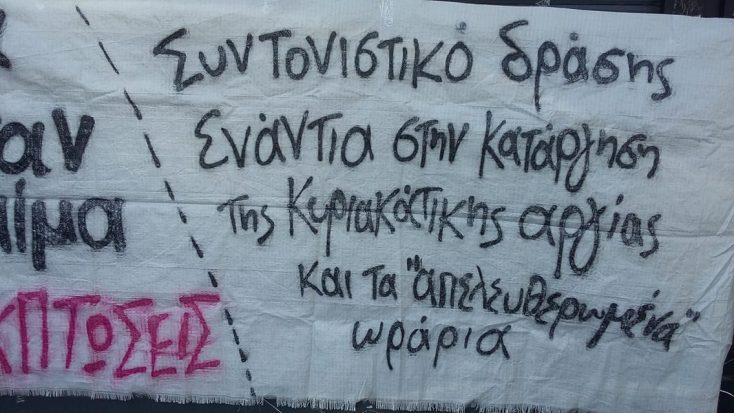 Συντονιστικό δράσης
ενάντια στην κατάργηση
της Κυριακάτικης αργίας
και τα "απελευθερωμένα"
ωράρια
αν
αίμα
ΚΠΤΩΣΕΙΣ